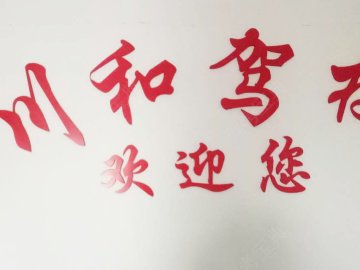 川和驾
欢迎您